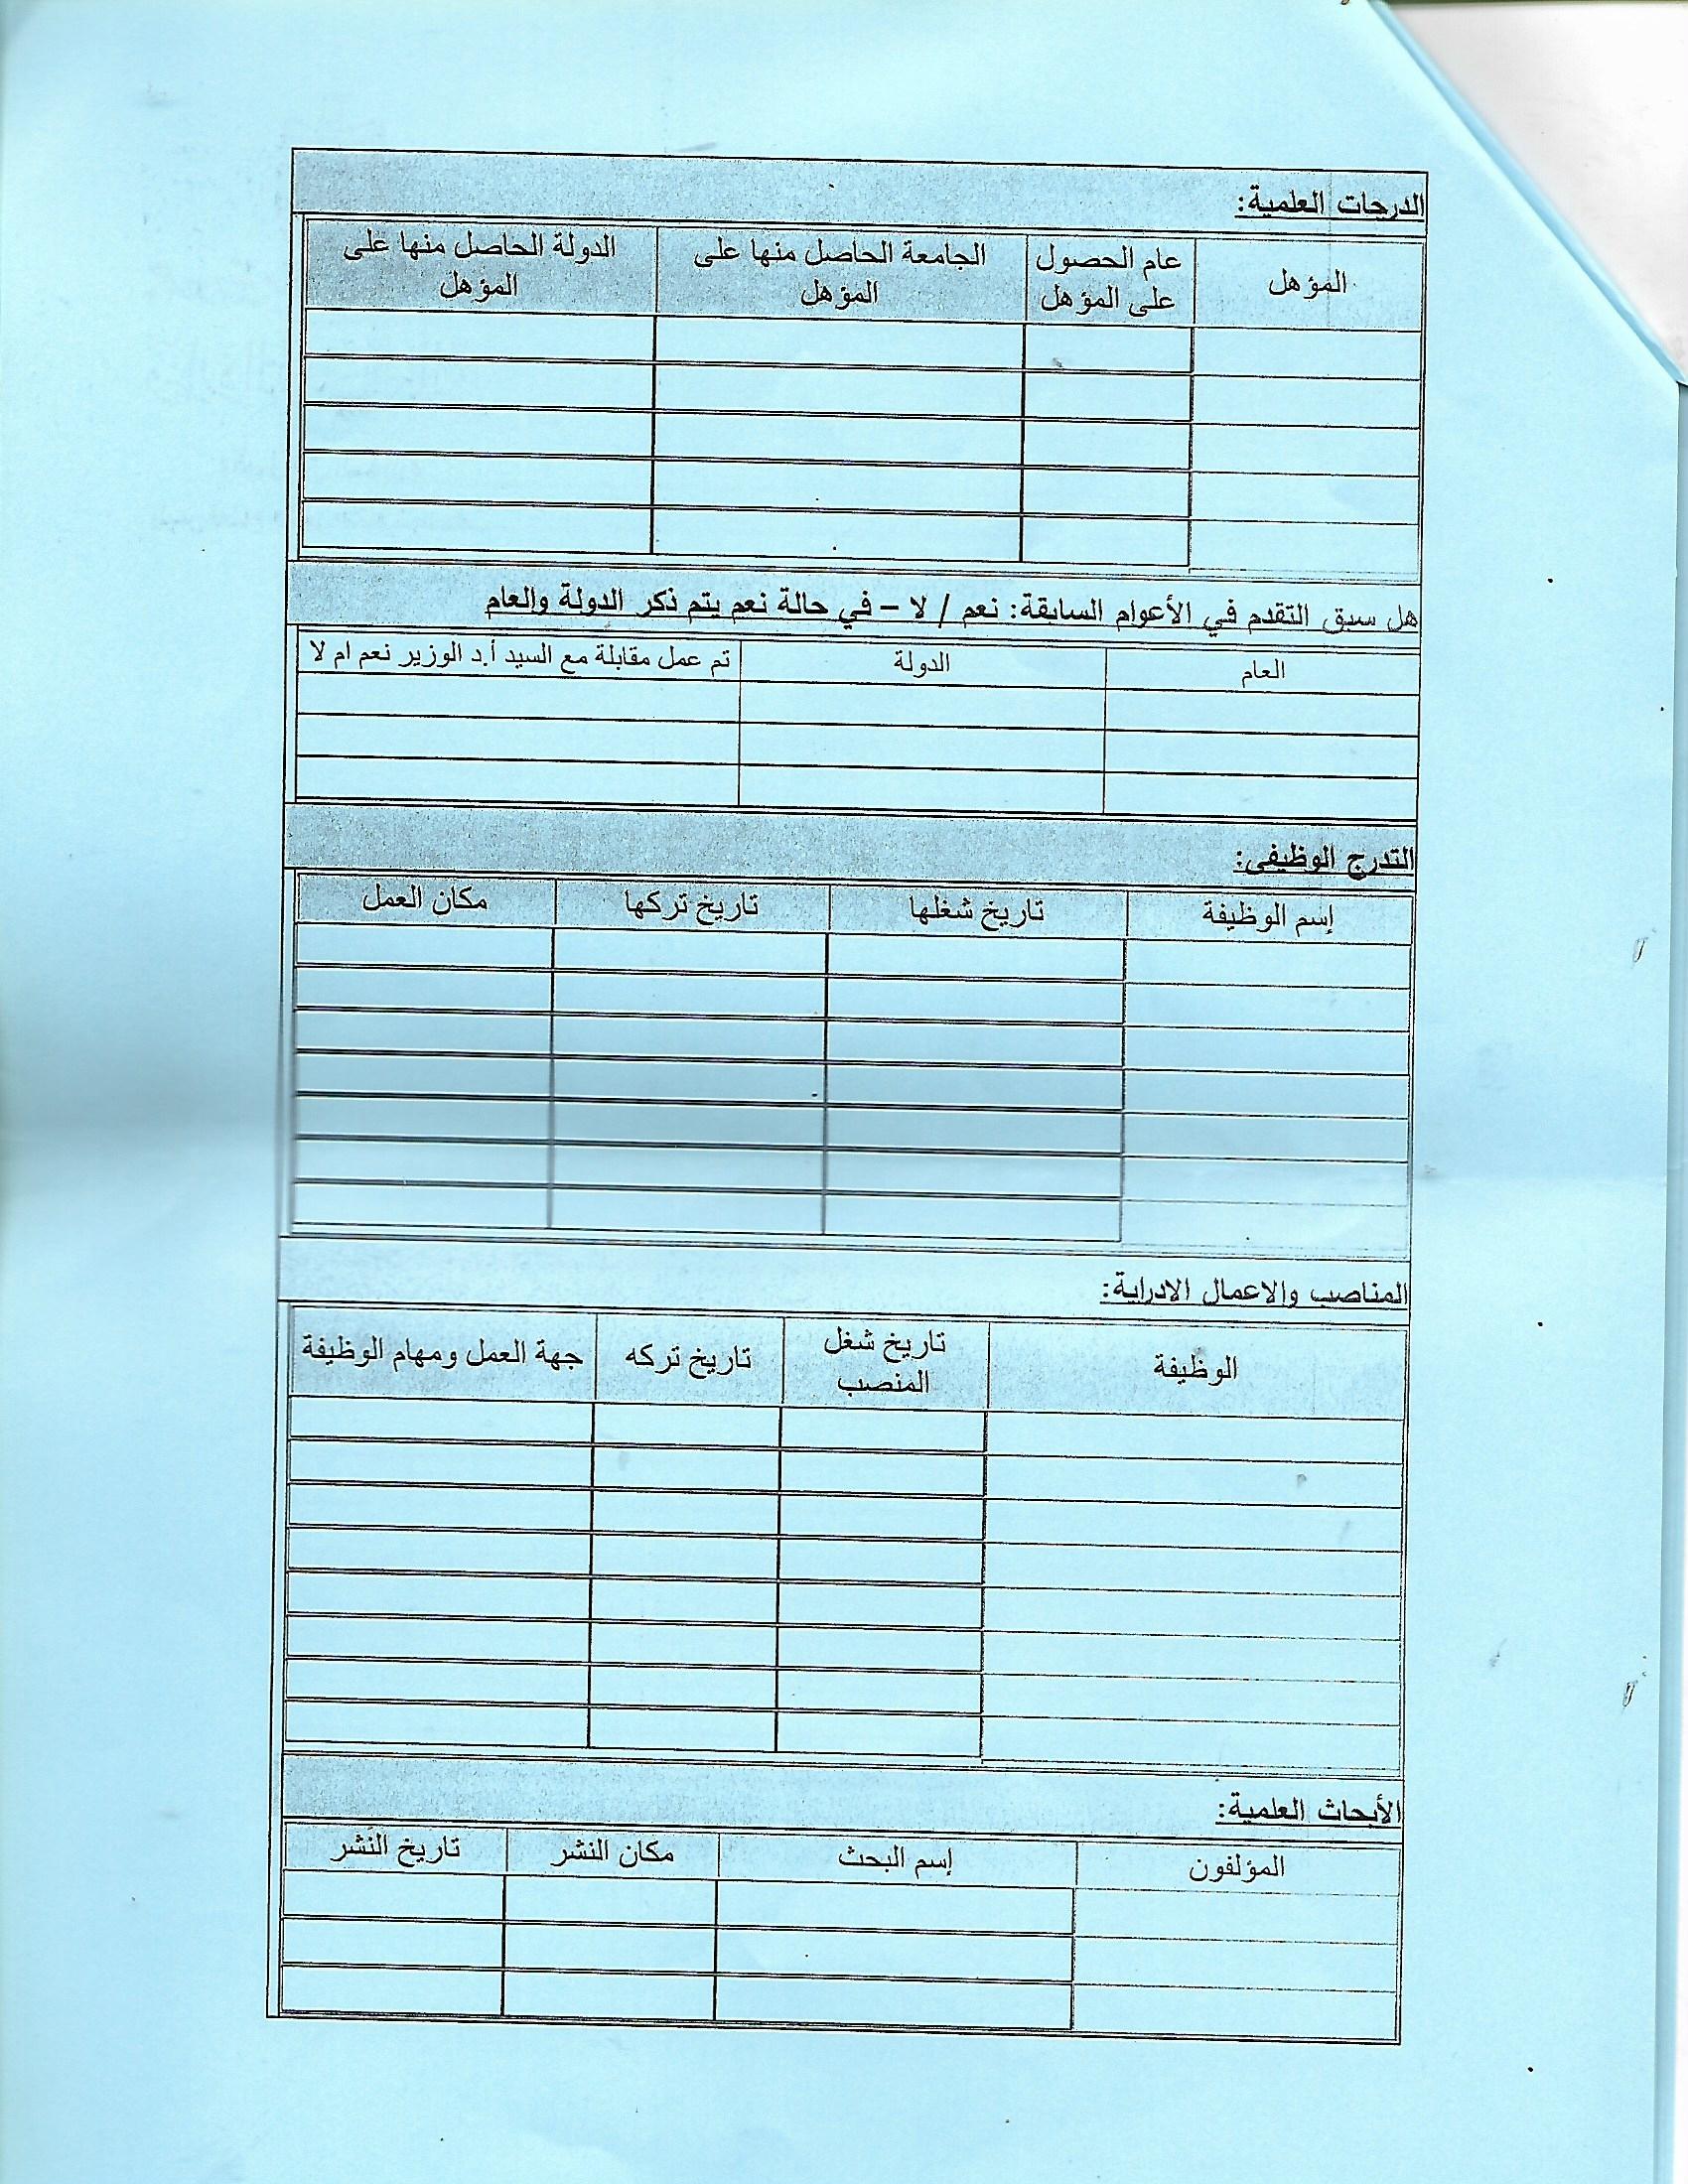 الدرجات العلمية:
المؤهل
عام الحصول
على المؤهل
الجامعة الحاصل منها على
المؤهل
الدولة الحاصل منها على
المؤهل
هل سبق التقدم في الأعوام السابقة: نعم / لا – في حالة نعم يتم ذكر الدولة والعام
العام
الدولة
تم عمل مقابلة مع السيد أ.د الوزير نعم ام لا
التدرج الوظيفى:
إسم الوظيفة
تاريخ شغلها
تاريخ تركها
مكان العمل
المناصب والاعمال الادراية:
الوظيفة
تاريخ شغل
المنصب
تاريخ تركه
جهة العمل ومهام الوظيفة
الأبحاث العلمية:
المؤلفون
إسم البحث
مكان النشر
تاريخ النشر